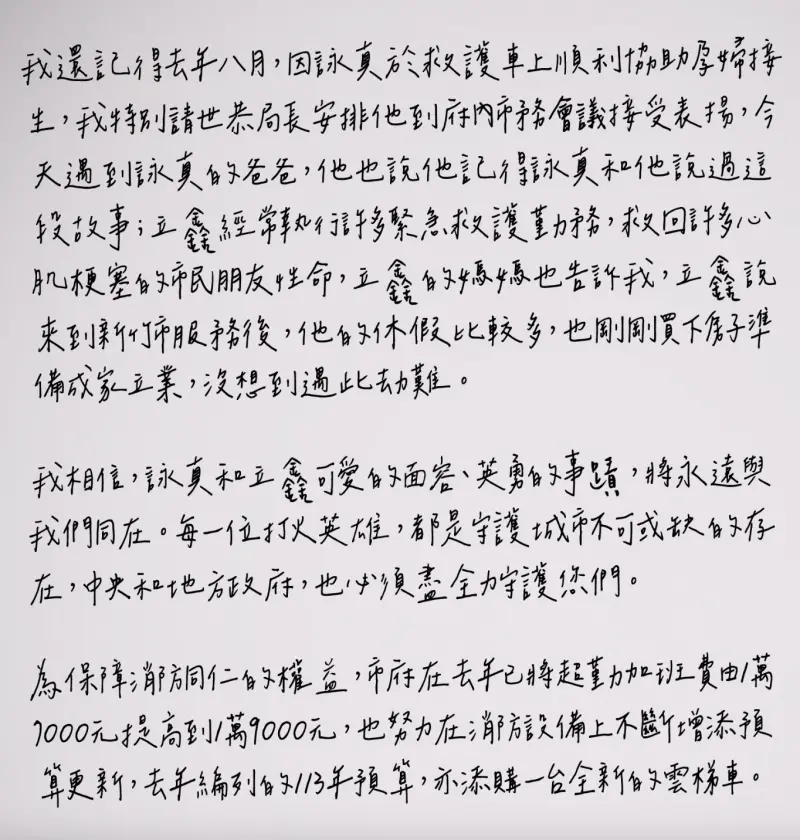 我還記得去年八月，因詠真於救護車上順利協助孕婦接
生，我特別請世恭局長安排他到府內市務會議接受表揚，今
天遇到詠真的爸爸，他也說他記得詠真和他說過這
段故事；立鑫經常執行許多緊急救護勤務，救回許多心
肌梗塞的市民朋友性命，立鑫的媽媽也告訴我，立鑫說
來到新竹市服務後，他的休假比較多，也剛剛買下房子準
備成家立業，沒想到遇此劫難。
我相信，詠真和立鑫可愛的面容、英勇的事蹟，將永遠與
我們同在。每一位打火英雄，都是守護城市不可或缺的存
在，中央和地方政府，也必須盡全力守護您們。
為保障消防同仁的權益，市府在去年已將超勤加班費由1萬
7000元提高到1萬9000元，也努力在消防設備上不斷增添預
算更新，去年編列的113年預算，亦添購一台全新的雲梯車。